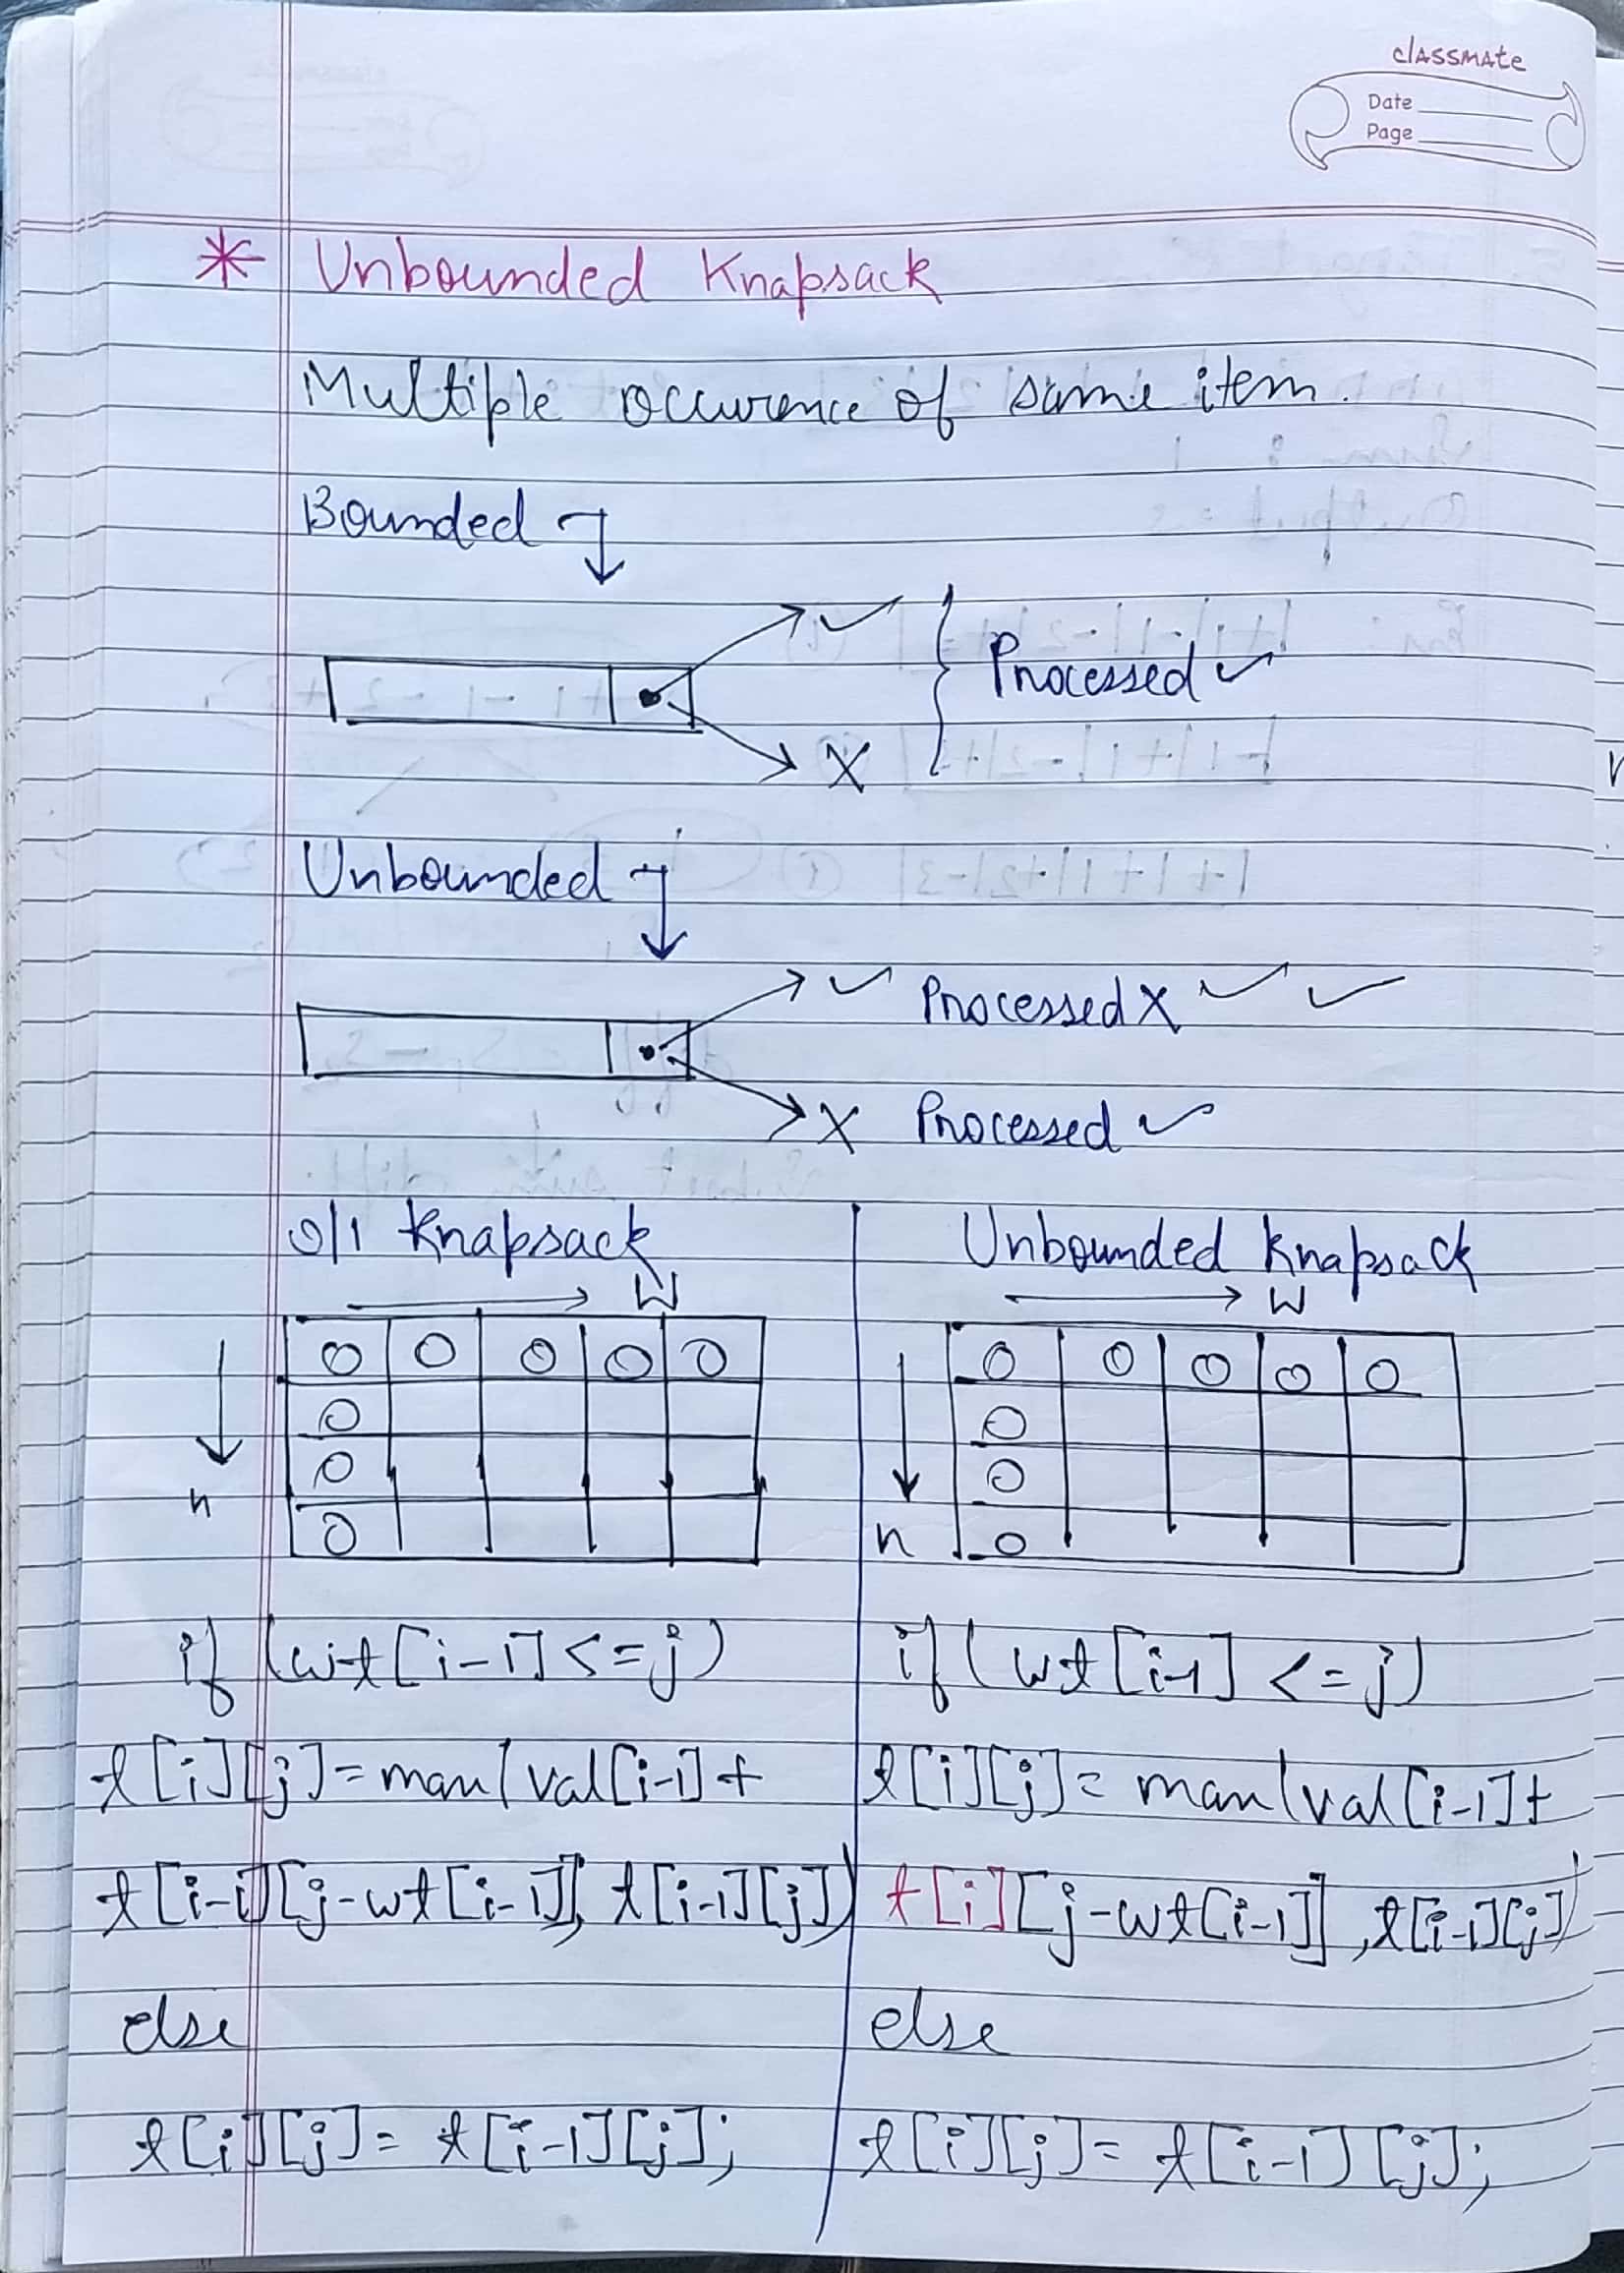 classmate
Date
Page
* Unbounded Knapsack
Multiple occurence of same item.
Bounded
✓
Processed ✓
X
Unbounded
✓ Processed X ✓ ✓
X Processed ✓
0/1 Knapsack
W
0 0 0 0 0
0
0
n
0
if (wt[i-1] <= j)
t[i][j] = max(val[i-1] +
t[i-1][j-wt[i-1]], t[i-1][j])
else
t[i][j] = t[i-1][j];
Unbounded Knapsack
W
0 0 0 0 0
0
0
n
0
if (wt[i-1] <= j)
t[i][j] = max(val[i-1] +
t[i][j-wt[i-1]], t[i-1][j])
else
t[i][j] = t[i-1][j];